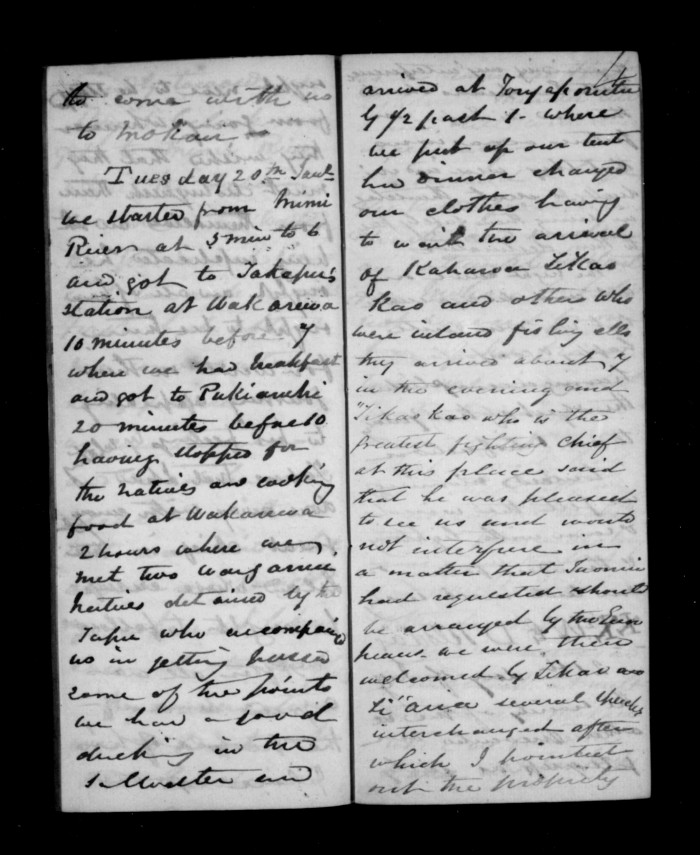 to come with us
to Mokau
Tuesday 20th
we started from Mimi
River at 5 min to 6
and got to Takapu's
station at Wakarewa
10 minutes before 7
where we had breakfast
and got to Pukiaruhi
20 minutes before 10
having stopped for
the natives and cooking
food at Wakarewa
2 hours where we
met two
natives detained by the
Tapu who accompanied
us in getting passed
some of the points
we had a good
ducking in the
Salt water and
arrived at Tongaporutu
by 1/2 past 1 - where
we put up our tent
had dinner changed
our clothes having
to wait the arrival
of Kaharoa Tikao
Kao and others who
were inland fishing eels
they arrived about 7
in the evening and
Tikaokao who is the
greatest fighting chief
at this place said
that he was pleased
to see us and would
not interfere in
a matter that
had requested should
be arranged by the
we were then
welcomed by Tikao and
several speeches
interchanged after
which I pointed
out the propriety